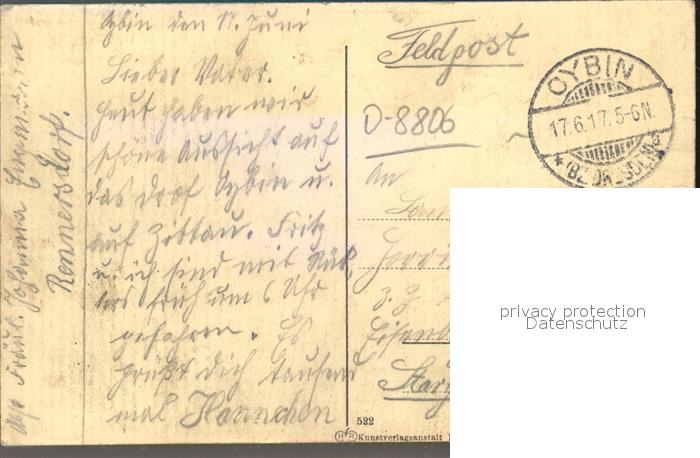 Oybin den 17. Juni
Lieber Vater.
Heut haben wir
schöne Aussicht auf
das Dorf Oybin u.
auf Zittau. Fritz
u. ich sind mit
früh um 6 Uhr
gefahren. Es
grüßt dich tausend
mal Hannchen
Fräul. Johanna
Rennersdorf.
Feldpost
D-8806
OYBIN
17.6.17. 5-6N.
* (BZ. DRESDEN)
An
z. Z.
522
Kunstverlagsanstalt
privacy protection
Datenschutz